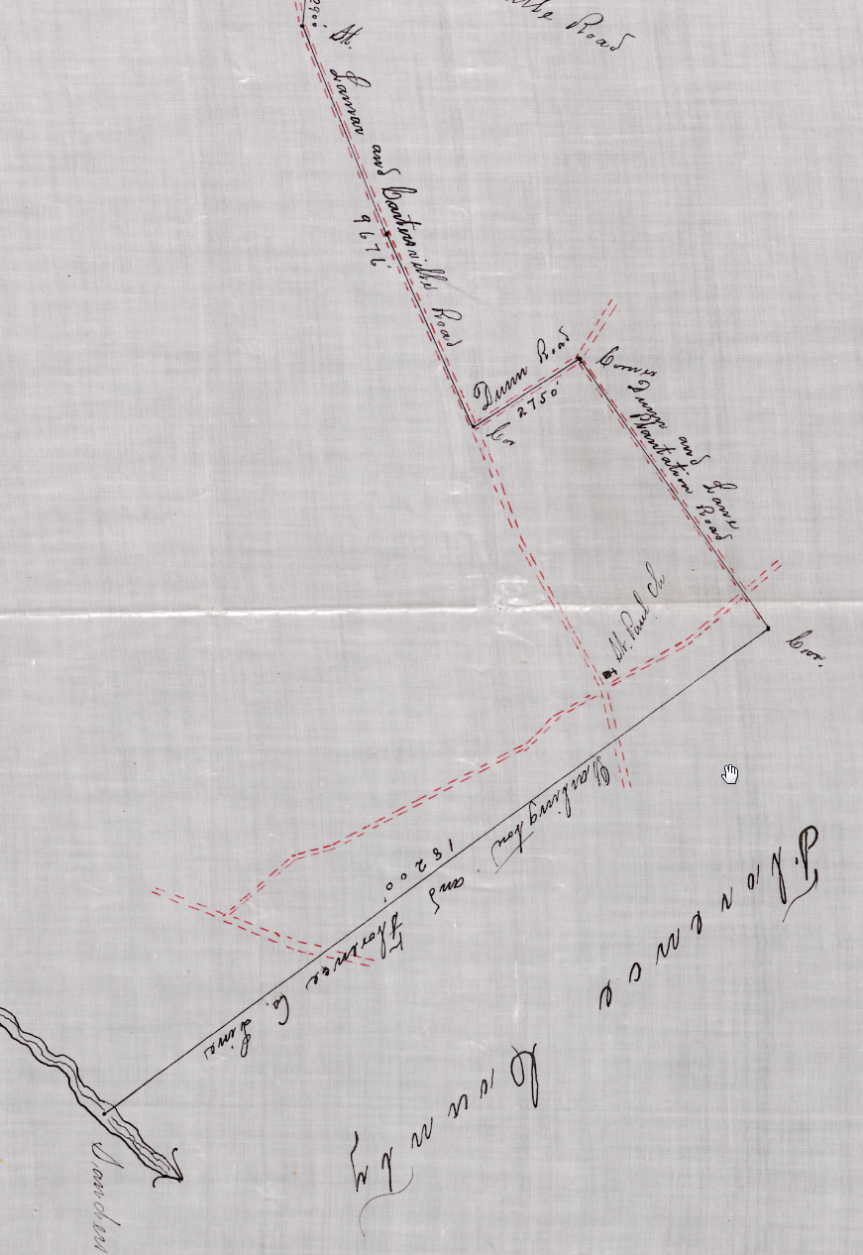 Road
2900'
St.
Lamar and Cartersville Road
9676'
Dunn Road
2750'
Corner
Dunn and Lane
Plantation Road
Cor
St. Paul Ch
Cor.
Darlington and Florence Co. Line
18200'
Florence
County